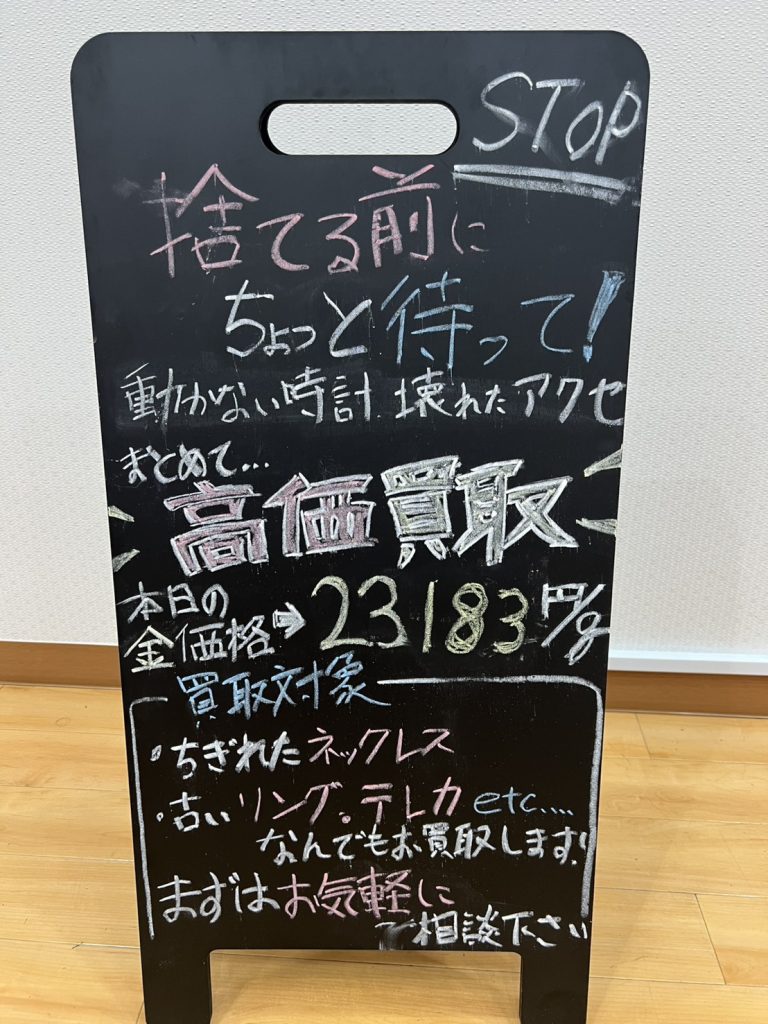 STOP
捨てる前に
ちょっと待って!
動かない時計 壊れたアクセ
まとめて...
高価買取
本日の
金価格→23183円/g
買取対象
・ちぎれたネックレス
・古いリング。テレカ etc....
なんでもお買取します!
まずはお気軽に
ご相談下さい